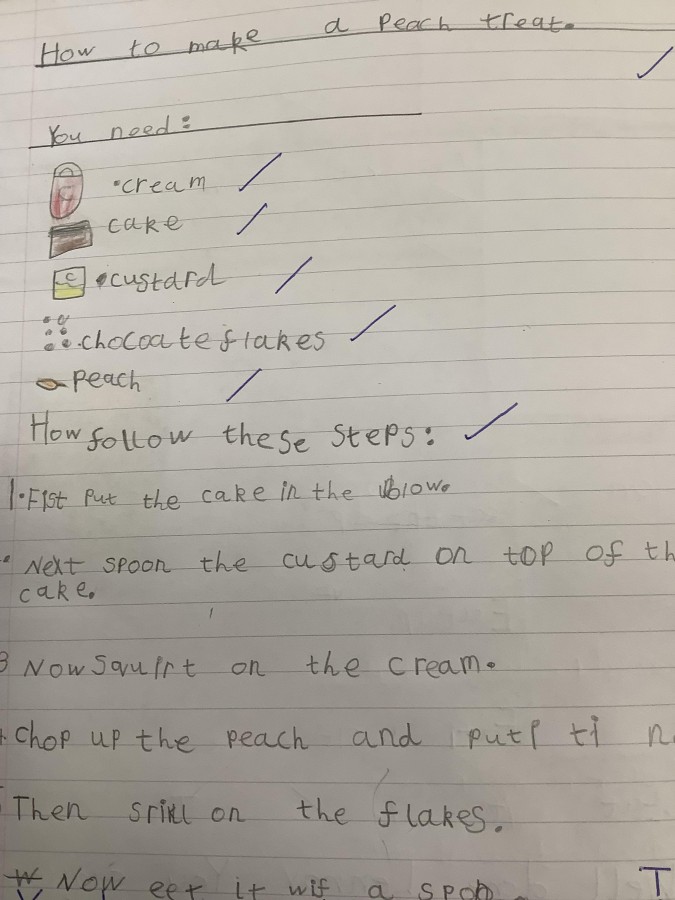 How to make a Peach treat.
You need:
•cream
cake
•custard
•chocoate flakes
Peach
How follow these steps:
1•Fist put the cake in the blow.
• Next spoon the custard on top of th
cake.
3 Now squirt on the cream.
Chop up the peach and put ti n
Then srikl on the flakes.
Now eet it wif a spon.
T